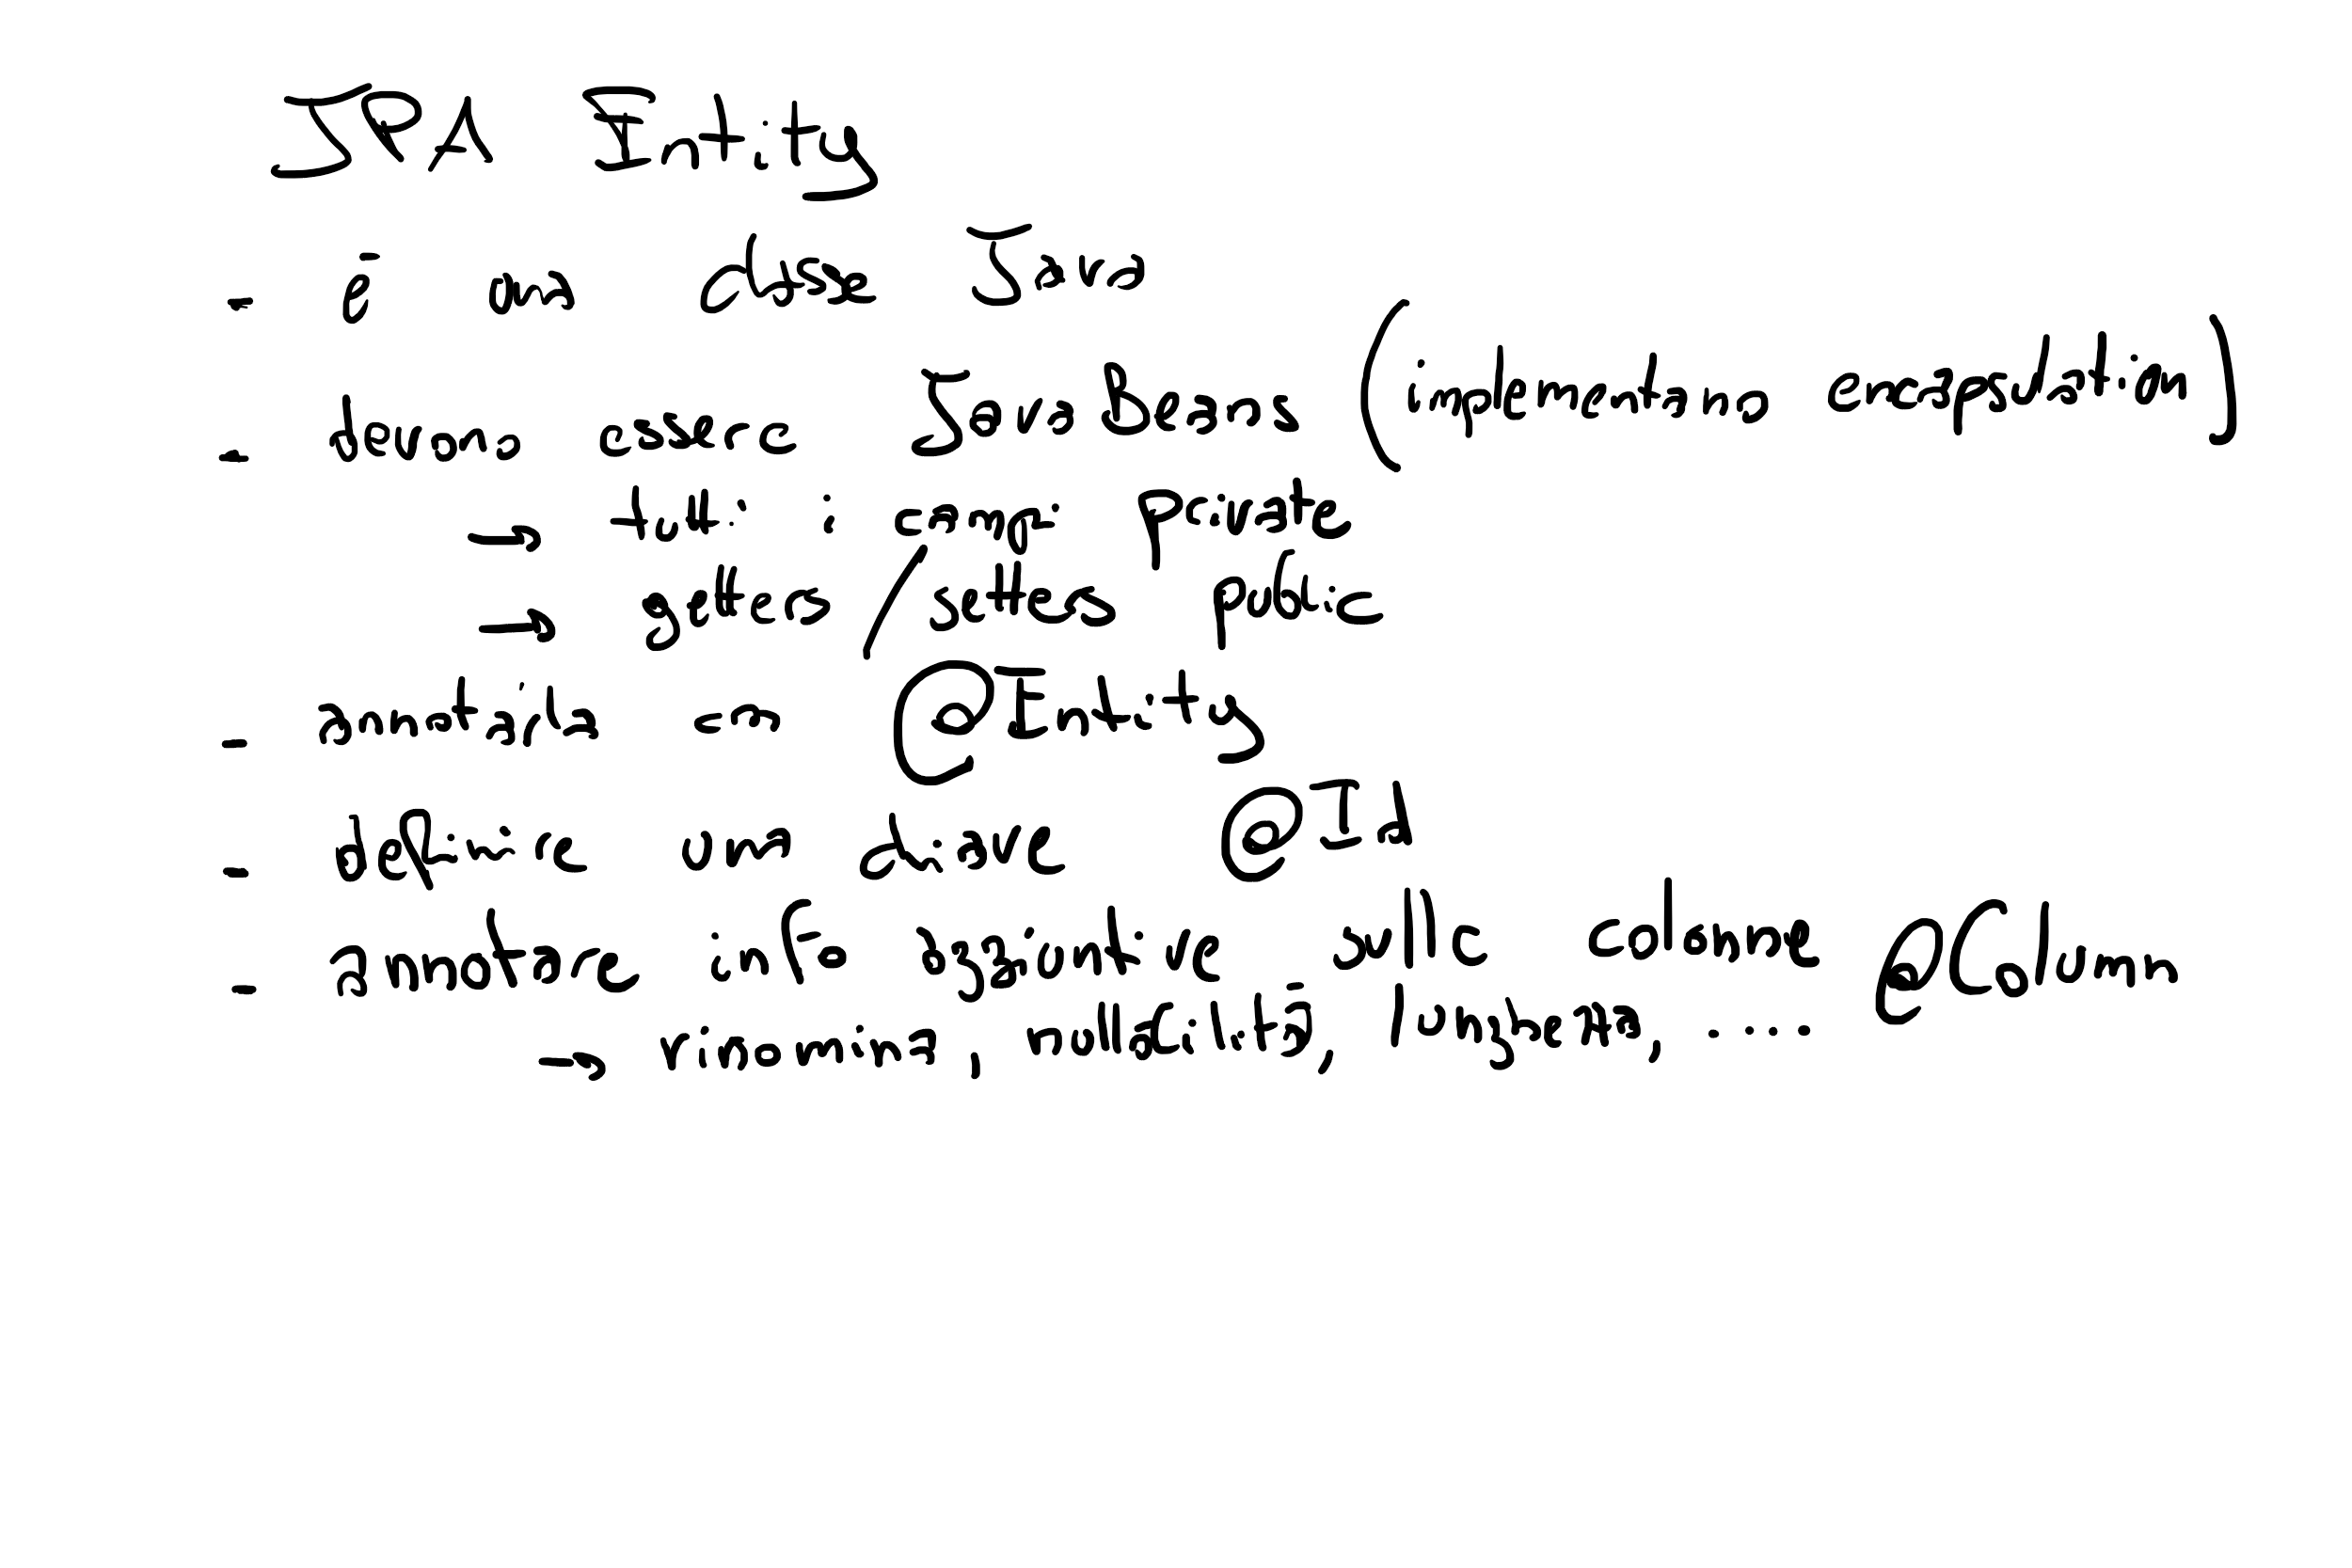 JPA Entity
- è una classe Java
- devono essere JavaBeans (implementano encapsulation)
→ tutti i campi private
→ getters/setters public
- annotarla con @Entity
- definire una chiave @Id
- annotare info aggiuntive sulle colonne @Column
→ rinomina, nullabilità, lunghezza, ....